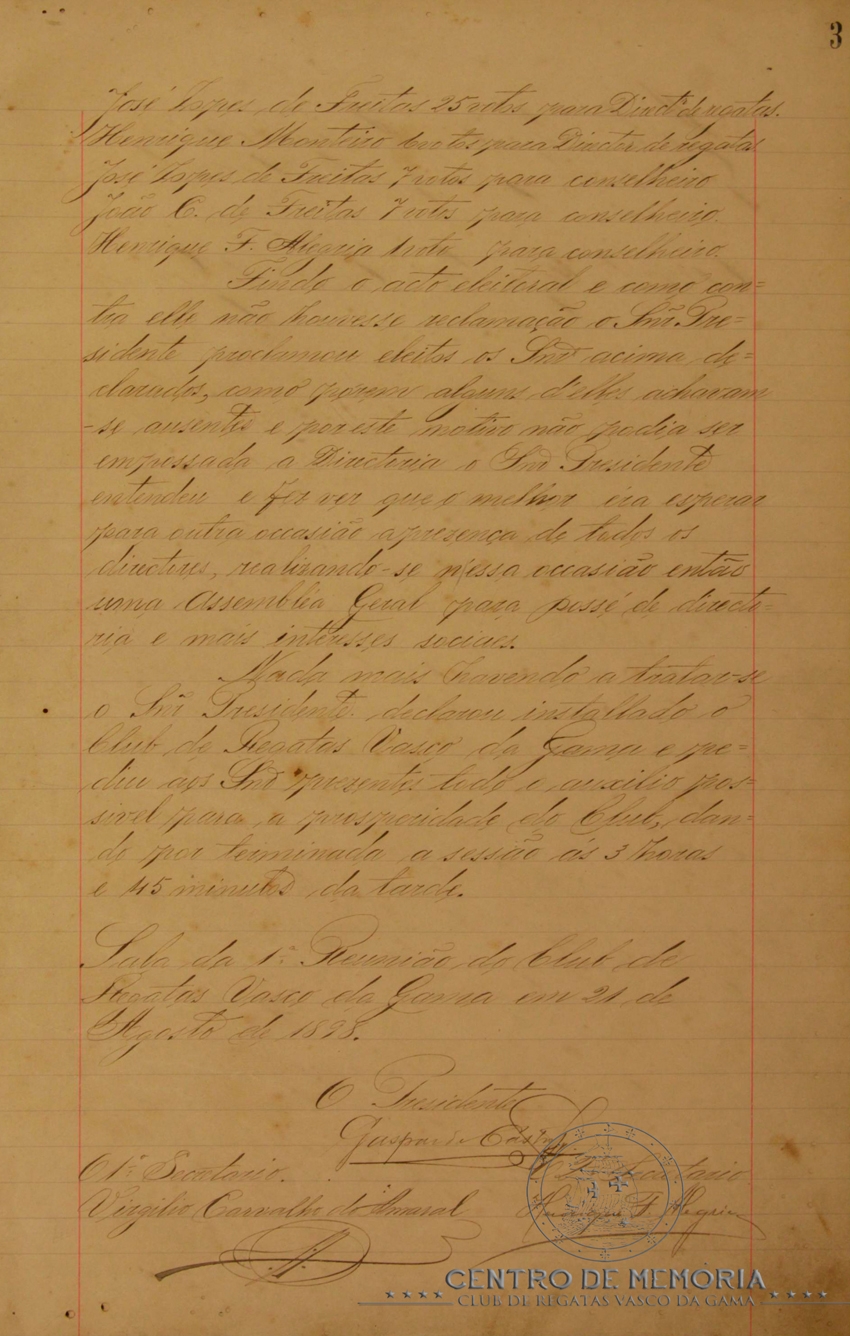 3
José Lopes de Freitas 25 votos para Direct.r de regatas.
Henrique Monteiro 6 votos para Director de regatas
José Lopes de Freitas 7 votos para conselheiro
João C. de Freitas 7 votos para conselheiro.
Henrique F. Alegria 1 voto para conselheiro.
Findo o acto eleitoral e como con=
tra elle não houvesse reclamação o Snr. Pre=
sidente proclamou eleitos os Snrs acima de=
clarados, como porem alguns d'elles achavam
-se ausentes e por este motivo não podia ser
empossada a Directoria o Snr Presidente
entendeu e fez ver que o melhor éra esperar
para outra occasião a presença de todos os
directores, realizando-se n'essa occasião então
uma Assembléa Geral para posse de directo-
ria e mais interesses sociaes.
Nada mais havendo a tratar-se
o Snr Presidente declarou installado o
Club de Regatas Vasco da Gama e pe=
diu aos Snrs presentes todo o auxilio pos=
sivel para a prosperidade do Club, dan=
do por terminada a sessão ás 3 horas
e 45 minutos da tarde.
Sala da 1ª Reunião do Club de
Regatas Vasco da Gama em 21 de
Agosto de 1898.
O Presidente
Gaspar de Castro
O 1º Secretario. O 2º Secretario
Virgilio Carvalho do Amaral Henrique F. Alegria
CENTRO DE MEMÓRIA
CLUB DE REGATAS VASCO DA GAMA